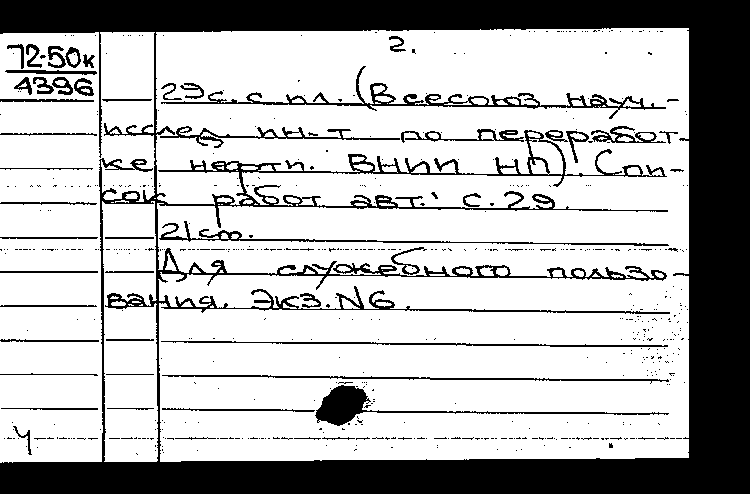 2.
72-50к
4396
29 с. с ил. (Всесоюз. науч.-
исслед. ин-т по переработ-
ке нефти. ВНИИ НП). Спи-
сок работ авт.: с. 29.
21 см.
Для служебного пользо-
вания. Экз. N6.
Ч